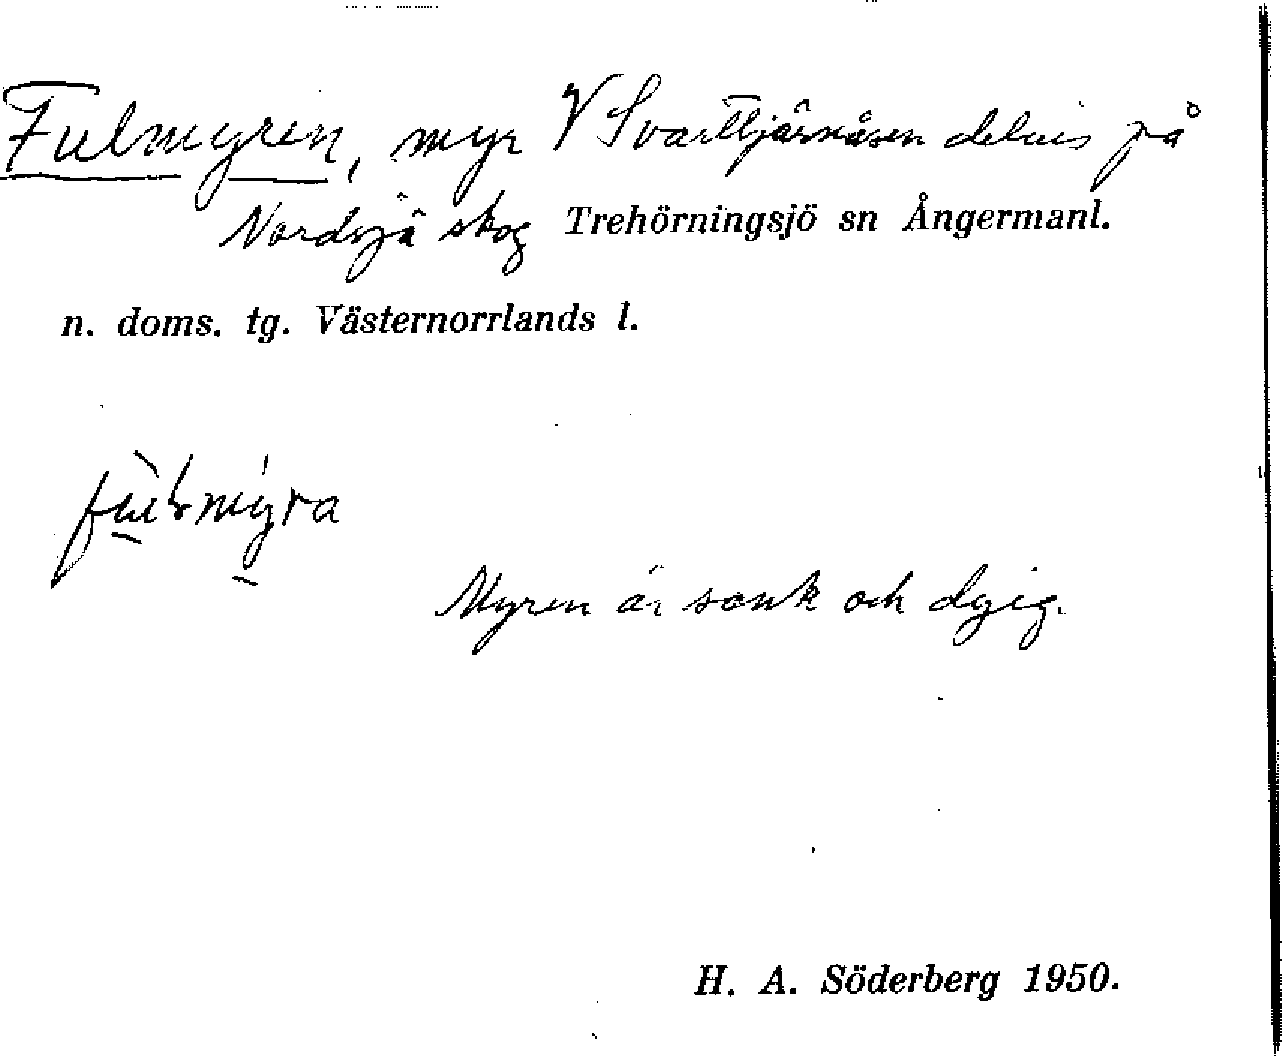 Fulmyren, myr V Svarttjärnåsen delvis på
Nordsjö skog Trehörningsjö sn Ångermanl.
n. doms. tg. Västernorrlands l.
Myren är sank och dyig.
H. A. Söderberg 1950.